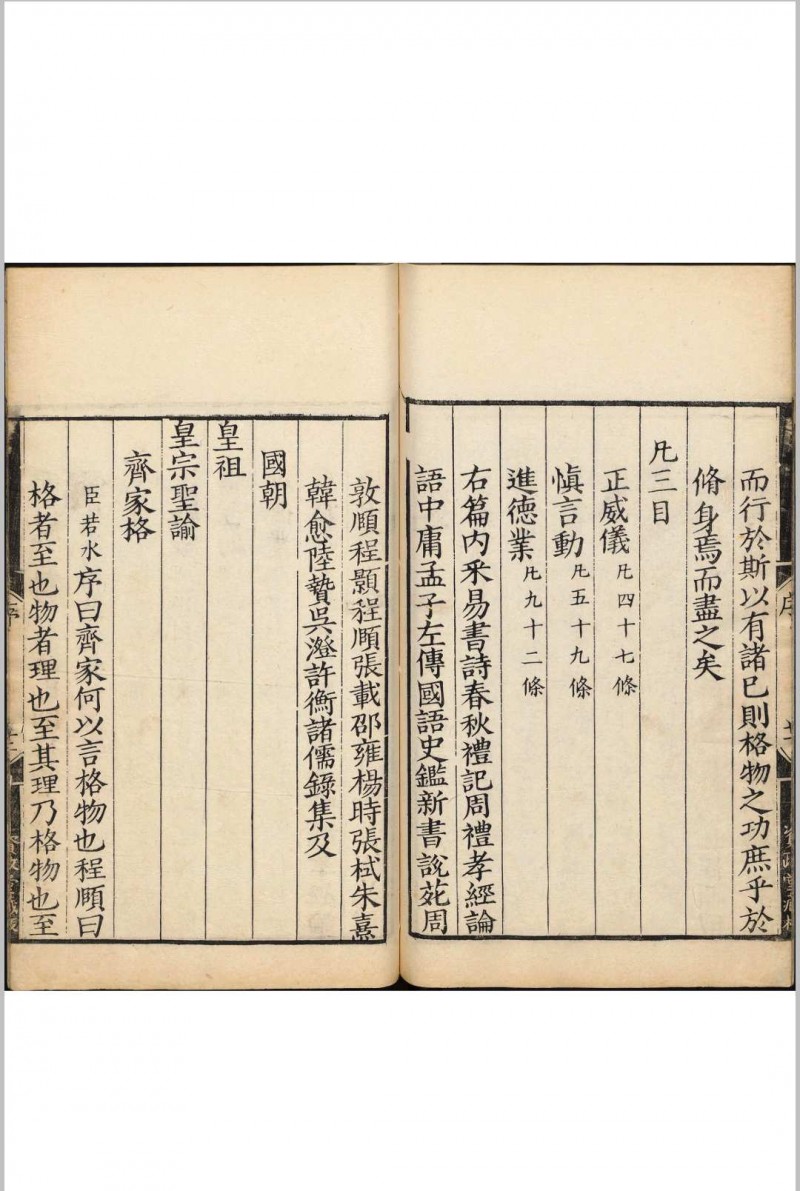 而行於斯以有諸已則格物之功庶乎於
脩身焉而盡之矣
凡三目
正威儀凡四十七條
慎言動凡五十九條
進德業凡九十二條
右篇内采易書詩春秋禮記周禮孝經論
語中庸孟子左傳國語史鑑新書説苑周
敦頤程顥程頤張載邵雍楊時張栻朱熹
韓愈陸贄吳澄許衡諸儒錄集及
國朝
皇祖
皇宗聖諭
齊家格
臣若水序曰齊家何以言格物也程頤曰
格者至也物者理也至其理乃格物也至
序
序